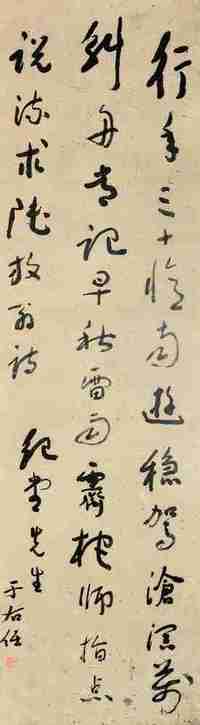 行年三十憶南遊穩駕滄溟萬
斛舟常記早秋雷雨霽柁師指点
説流求陸放翁詩
先生
于右任